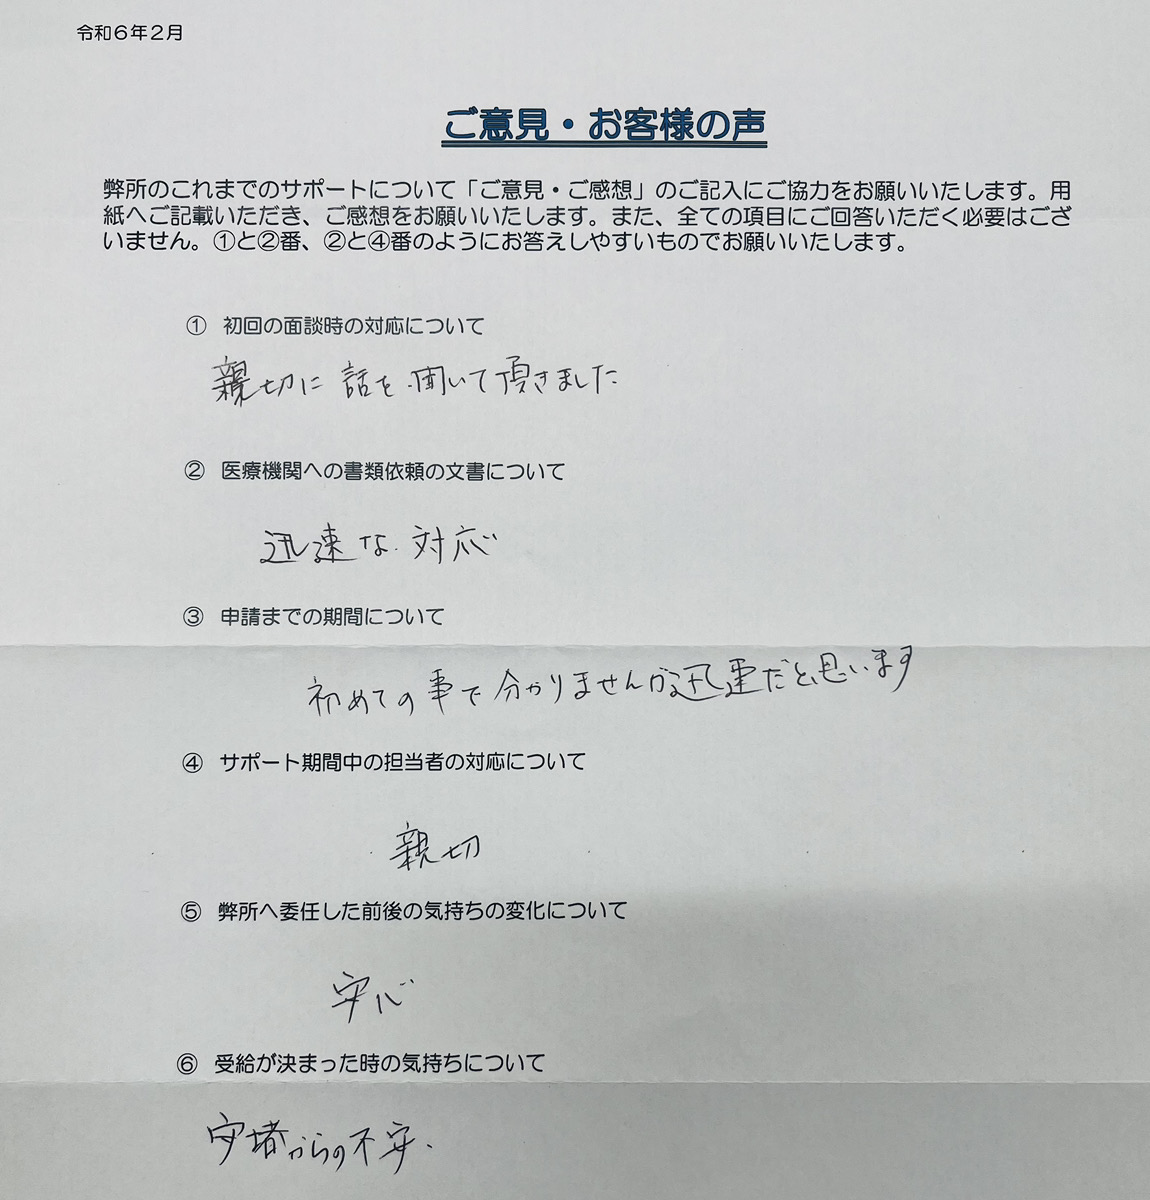 令和６年２月
ご意見・お客様の声
弊所のこれまでのサポートについて「ご意見・ご感想」のご記入にご協力をお願いいたします。用
紙へご記載いただき、ご感想をお願いいたします。また、全ての項目にご回答いただく必要はござ
いません。①と②番、②と④番のようにお答えしやすいものでお願いいたします。
① 初回の面談時の対応について
親切に話を聞いて頂きました
② 医療機関への書類依頼の文書について
迅速な対応
③ 申請までの期間について
初めての事で分かりませんが迅速だと思います
④ サポート期間中の担当者の対応について
親切
⑤ 弊所へ委任した前後の気持ちの変化について
安心
⑥ 受給が決まった時の気持ちについて
安堵からの不安.